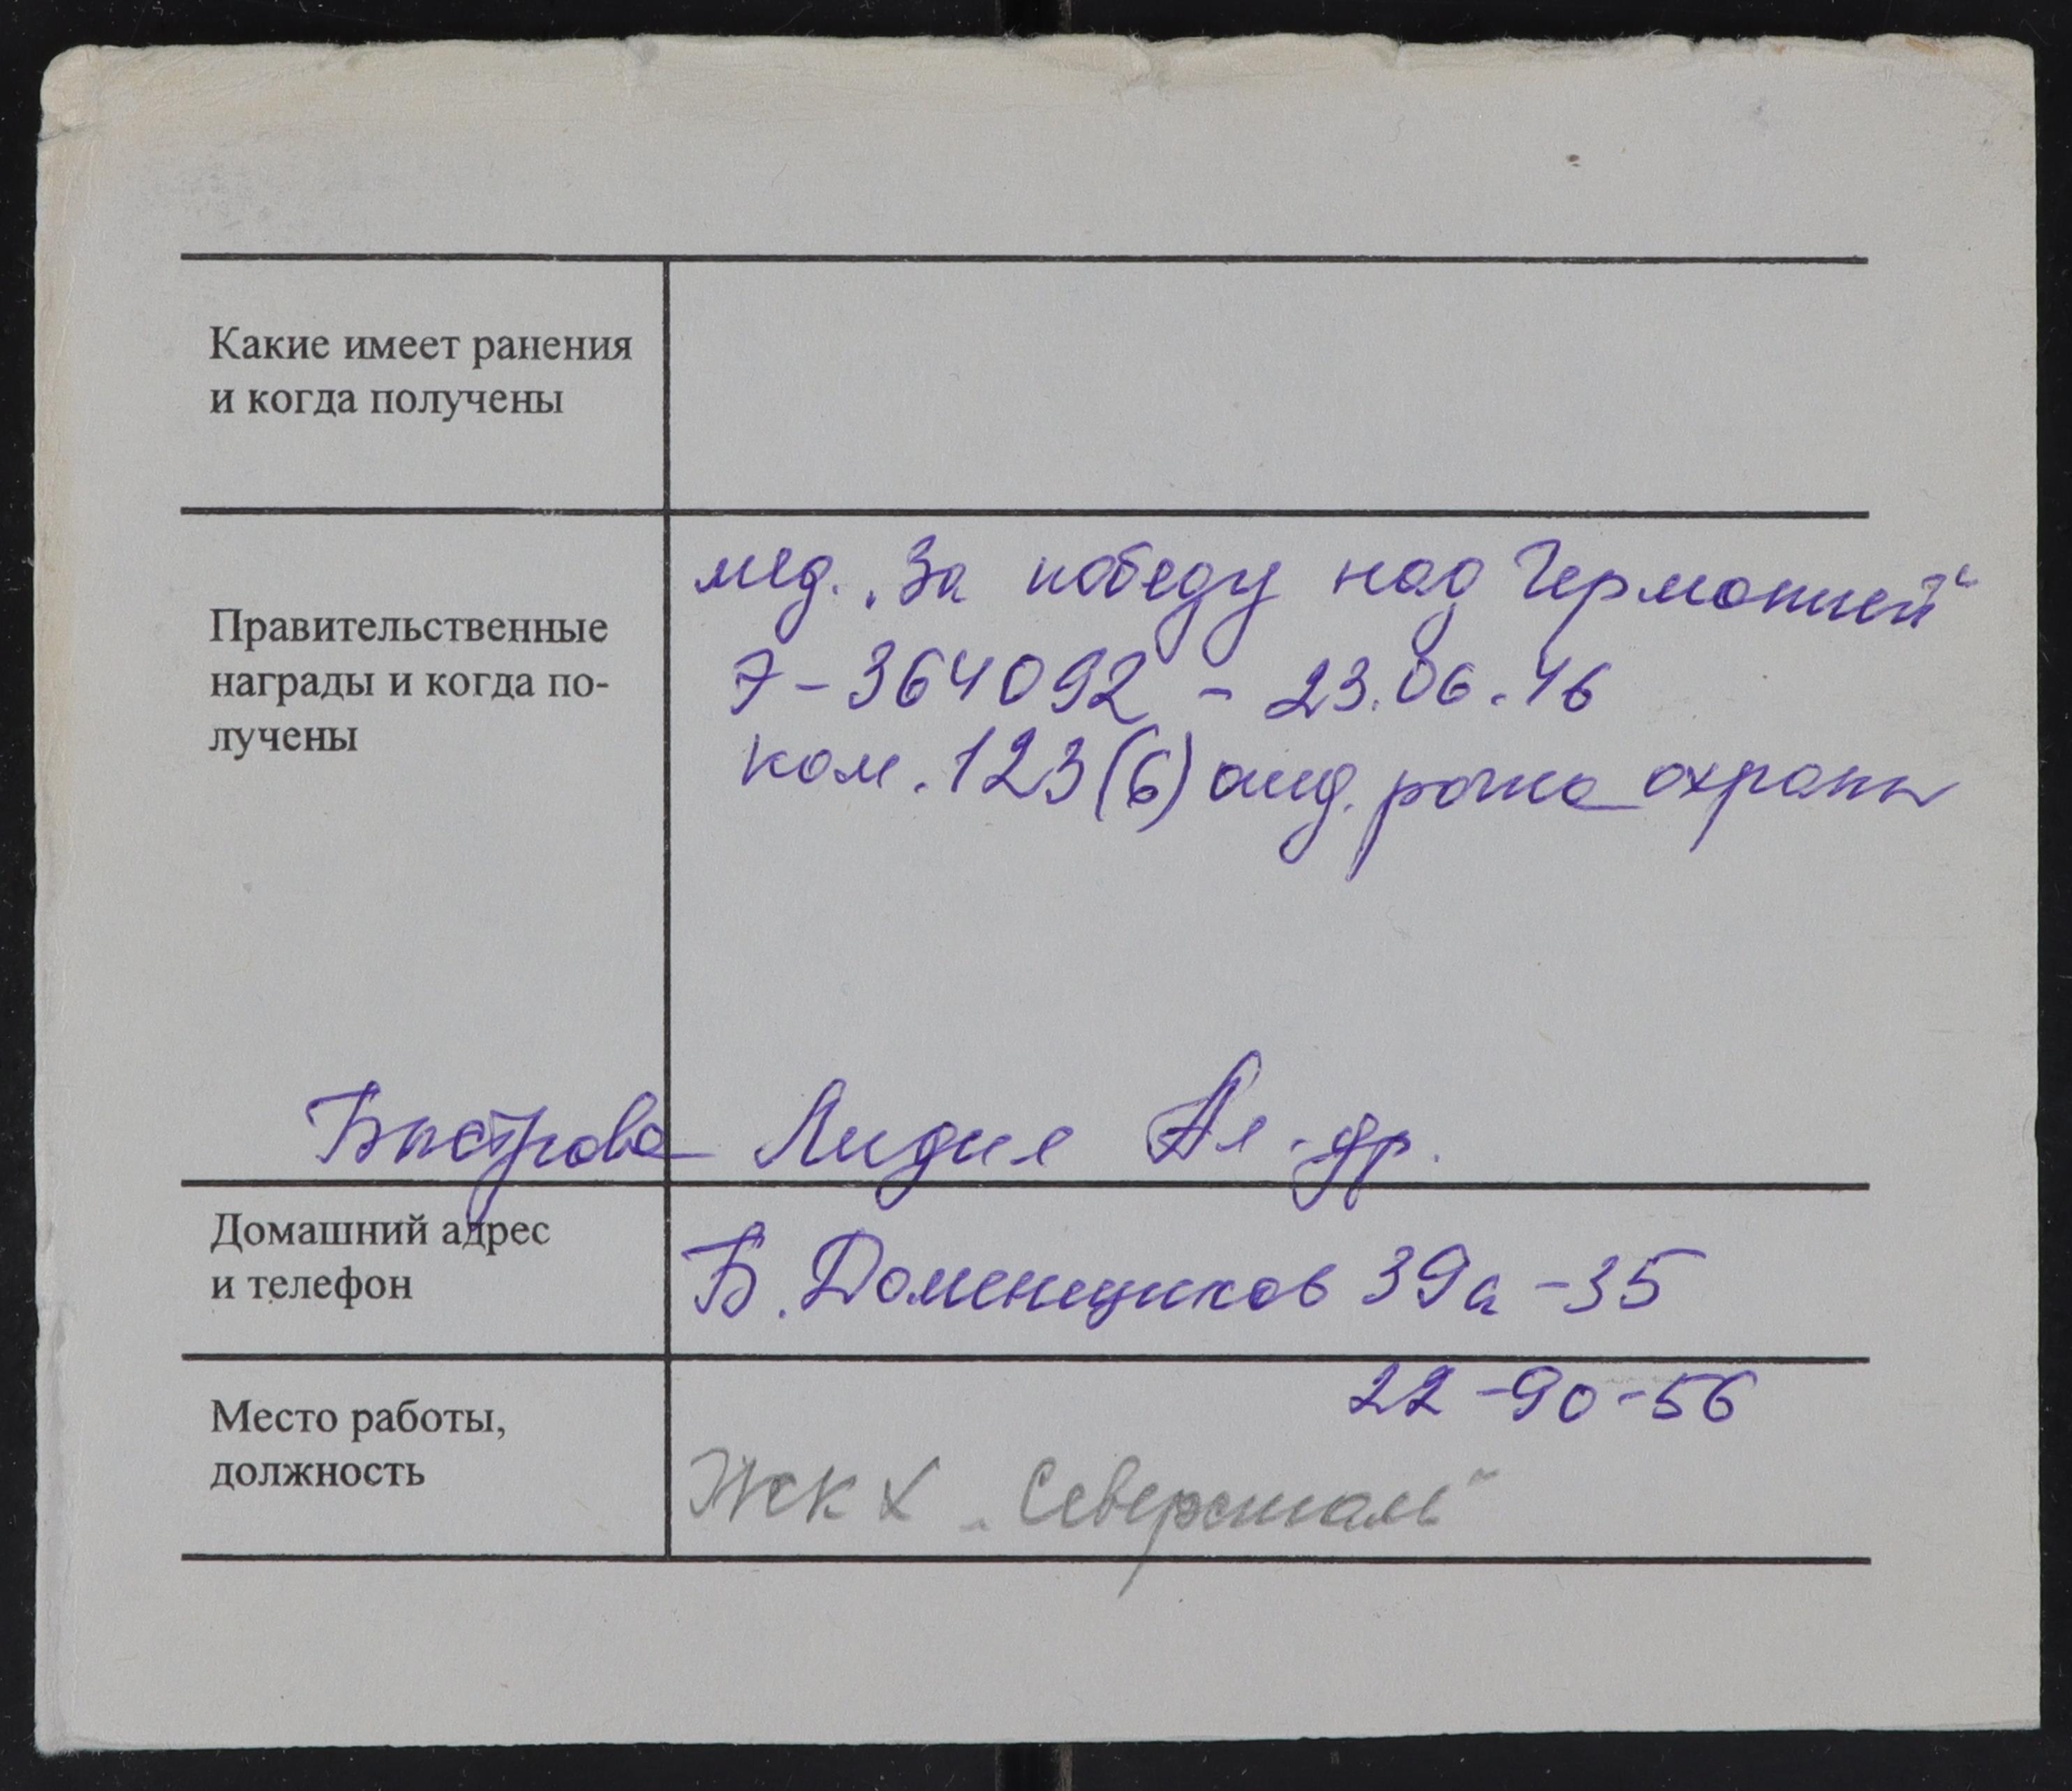 Какие имеет ранения
и когда получены
Правительственные
награды и когда по-
лучены
мед. „За победу над Германией“
7-364092 - 23.06.46
ком. 123(6) отд. рота охраны
Быстрова Лидия Ал-др.
Домашний адрес
и телефон
Б. Доменщиков 39а-35
22-90-56
Место работы,
должность
ЖКХ „Северсталь“